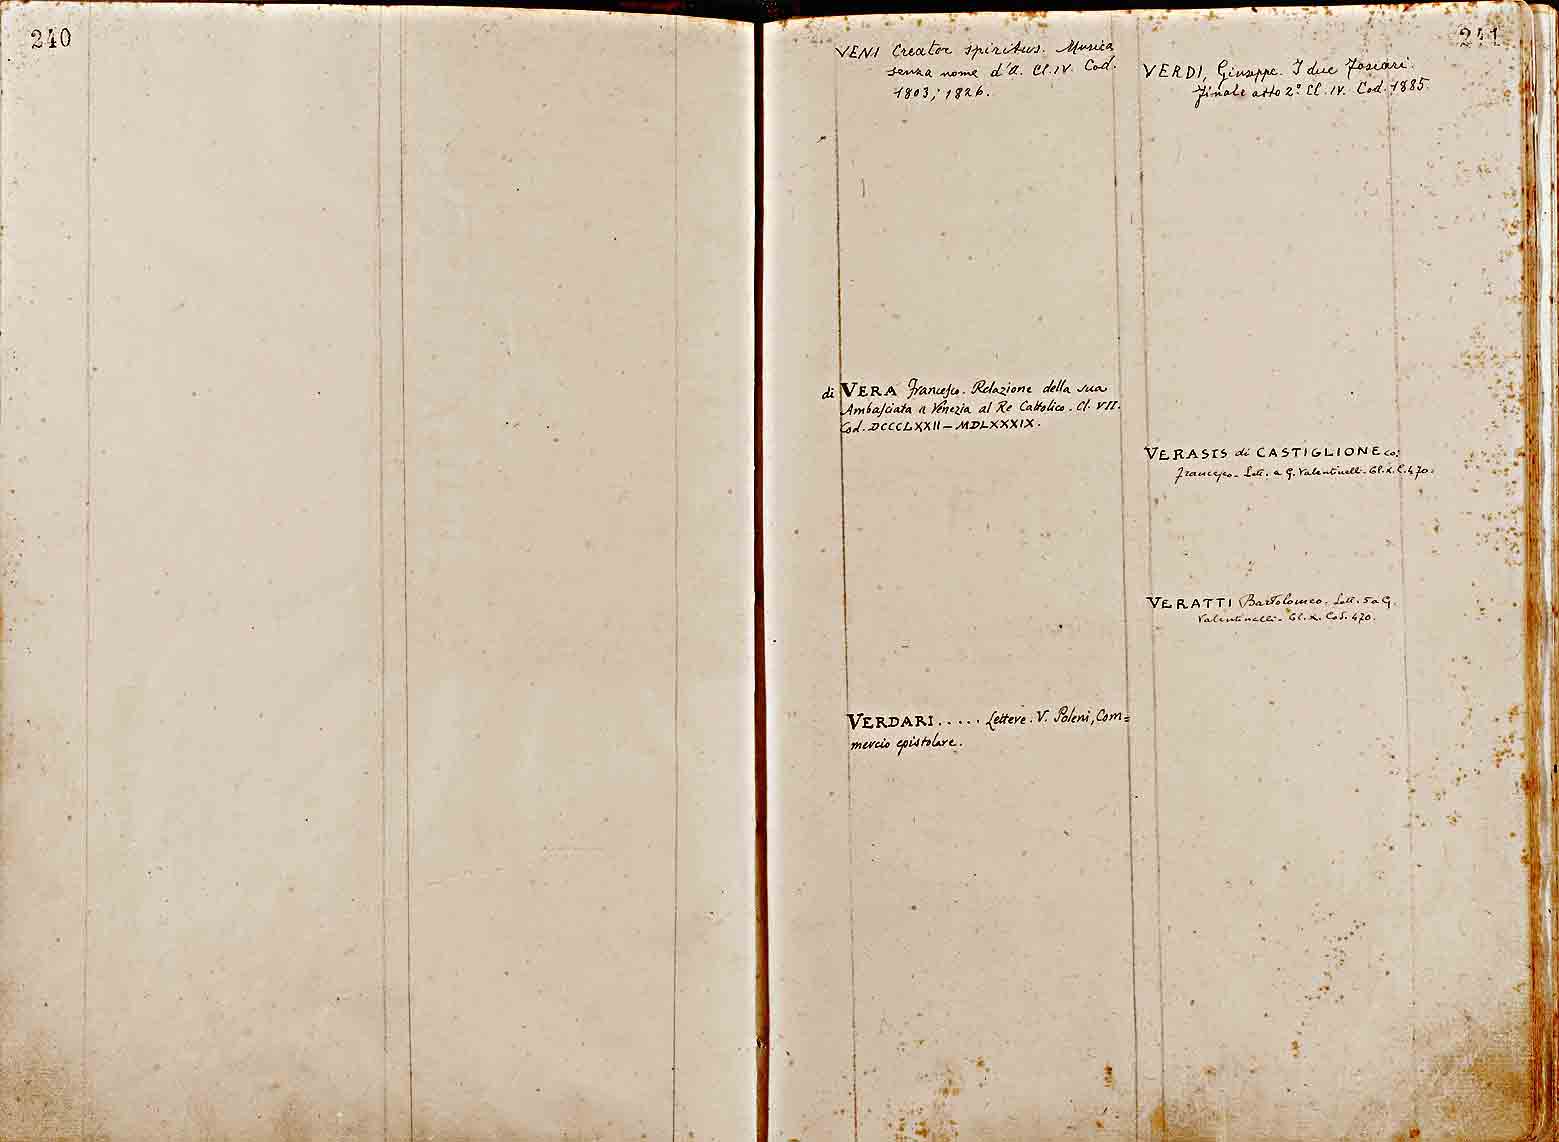 240
241
VENI Creator spiritus. Musica
senza nome d'A. Cl. IV. Cod.
1803; 1826.
di VERA Francesco. Relazione della sua
Ambasciata a Venezia al Re Cattolico. Cl. VII.
Cod. DCCCLXXII – MDLXXXIX.
VERDARI..... Lettere. V. Poleni, Com=
mercio epistolare.
VERDI, Giuseppe. I due Foscari.
Finale atto 2º. Cl. IV. Cod. 1885.
VERASIS di CASTIGLIONE co:
Francesco - Lett. a G. Valentinelli - Cl. X. C. 470.
VERATTI Bartolomeo. Lett. 5 a G.
Valentinelli - Cl. X. Cod. 470.